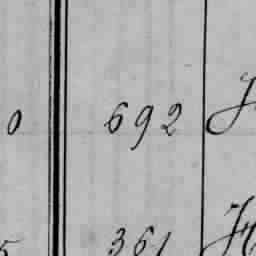 0 692
5 361